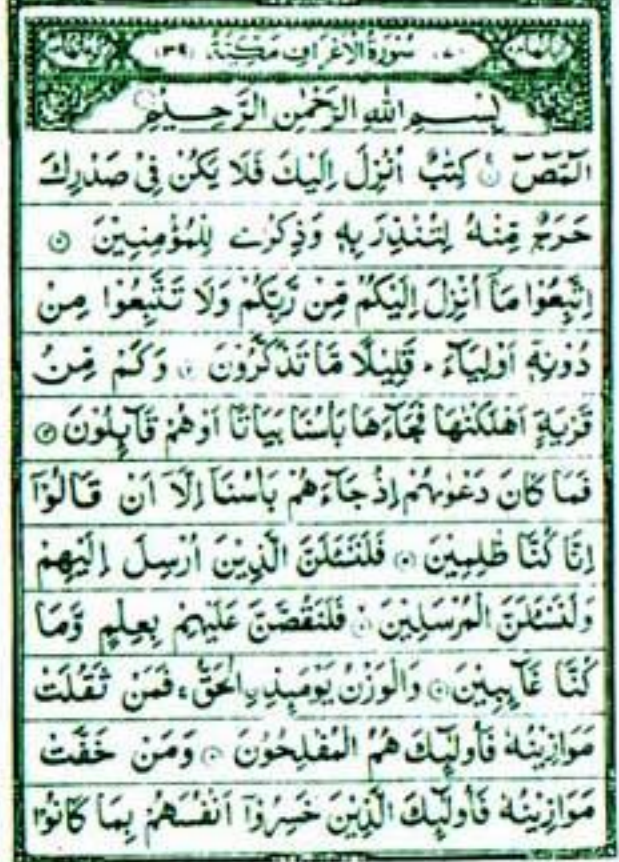 سُوْرَةُ الْاَعْرَافِ مَكِّيَّةٌ (٣٩)
بِسْمِ اللهِ الرَّحْمٰنِ الرَّحِيْمِ
الٓمّٓصٓ ۝ كِتٰبٌ اُنْزِلَ اِلَيْكَ فَلَا يَكُنْ فِيْ صَدْرِكَ
حَرَجٌ مِّنْهُ لِتُنْذِرَ بِهٖ وَذِكْرٰى لِلْمُؤْمِنِيْنَ ۝
اِتَّبِعُوْا مَآ اُنْزِلَ اِلَيْكُمْ مِّنْ رَّبِّكُمْ وَلَا تَتَّبِعُوْا مِنْ
دُوْنِهٖٓ اَوْلِيَآءَ ۚ قَلِيْلًا مَّا تَذَكَّرُوْنَ ۝ وَكَمْ مِّنْ
قَرْيَةٍ اَهْلَكْنٰهَا فَجَآءَهَا بَاْسُنَا بَيَاتًا اَوْ هُمْ قَآئِلُوْنَ ۝
فَمَا كَانَ دَعْوٰىهُمْ اِذْ جَآءَهُمْ بَاْسُنَآ اِلَّآ اَنْ قَالُوْٓا
اِنَّا كُنَّا ظٰلِمِيْنَ ۝ فَلَنَسْئَلَنَّ الَّذِيْنَ اُرْسِلَ اِلَيْهِمْ
وَلَنَسْئَلَنَّ الْمُرْسَلِيْنَ ۝ فَلَنَقُصَّنَّ عَلَيْهِمْ بِعِلْمٍ وَّمَا
كُنَّا غَآئِبِيْنَ ۝ وَالْوَزْنُ يَوْمَئِذِ ِۨالْحَقُّ ۚ فَمَنْ ثَقُلَتْ
مَوَازِيْنُهٗ فَاُولٰٓئِكَ هُمُ الْمُفْلِحُوْنَ ۝ وَمَنْ خَفَّتْ
مَوَازِيْنُهٗ فَاُولٰٓئِكَ الَّذِيْنَ خَسِرُوْٓا اَنْفُسَهُمْ بِمَا كَانُوْا